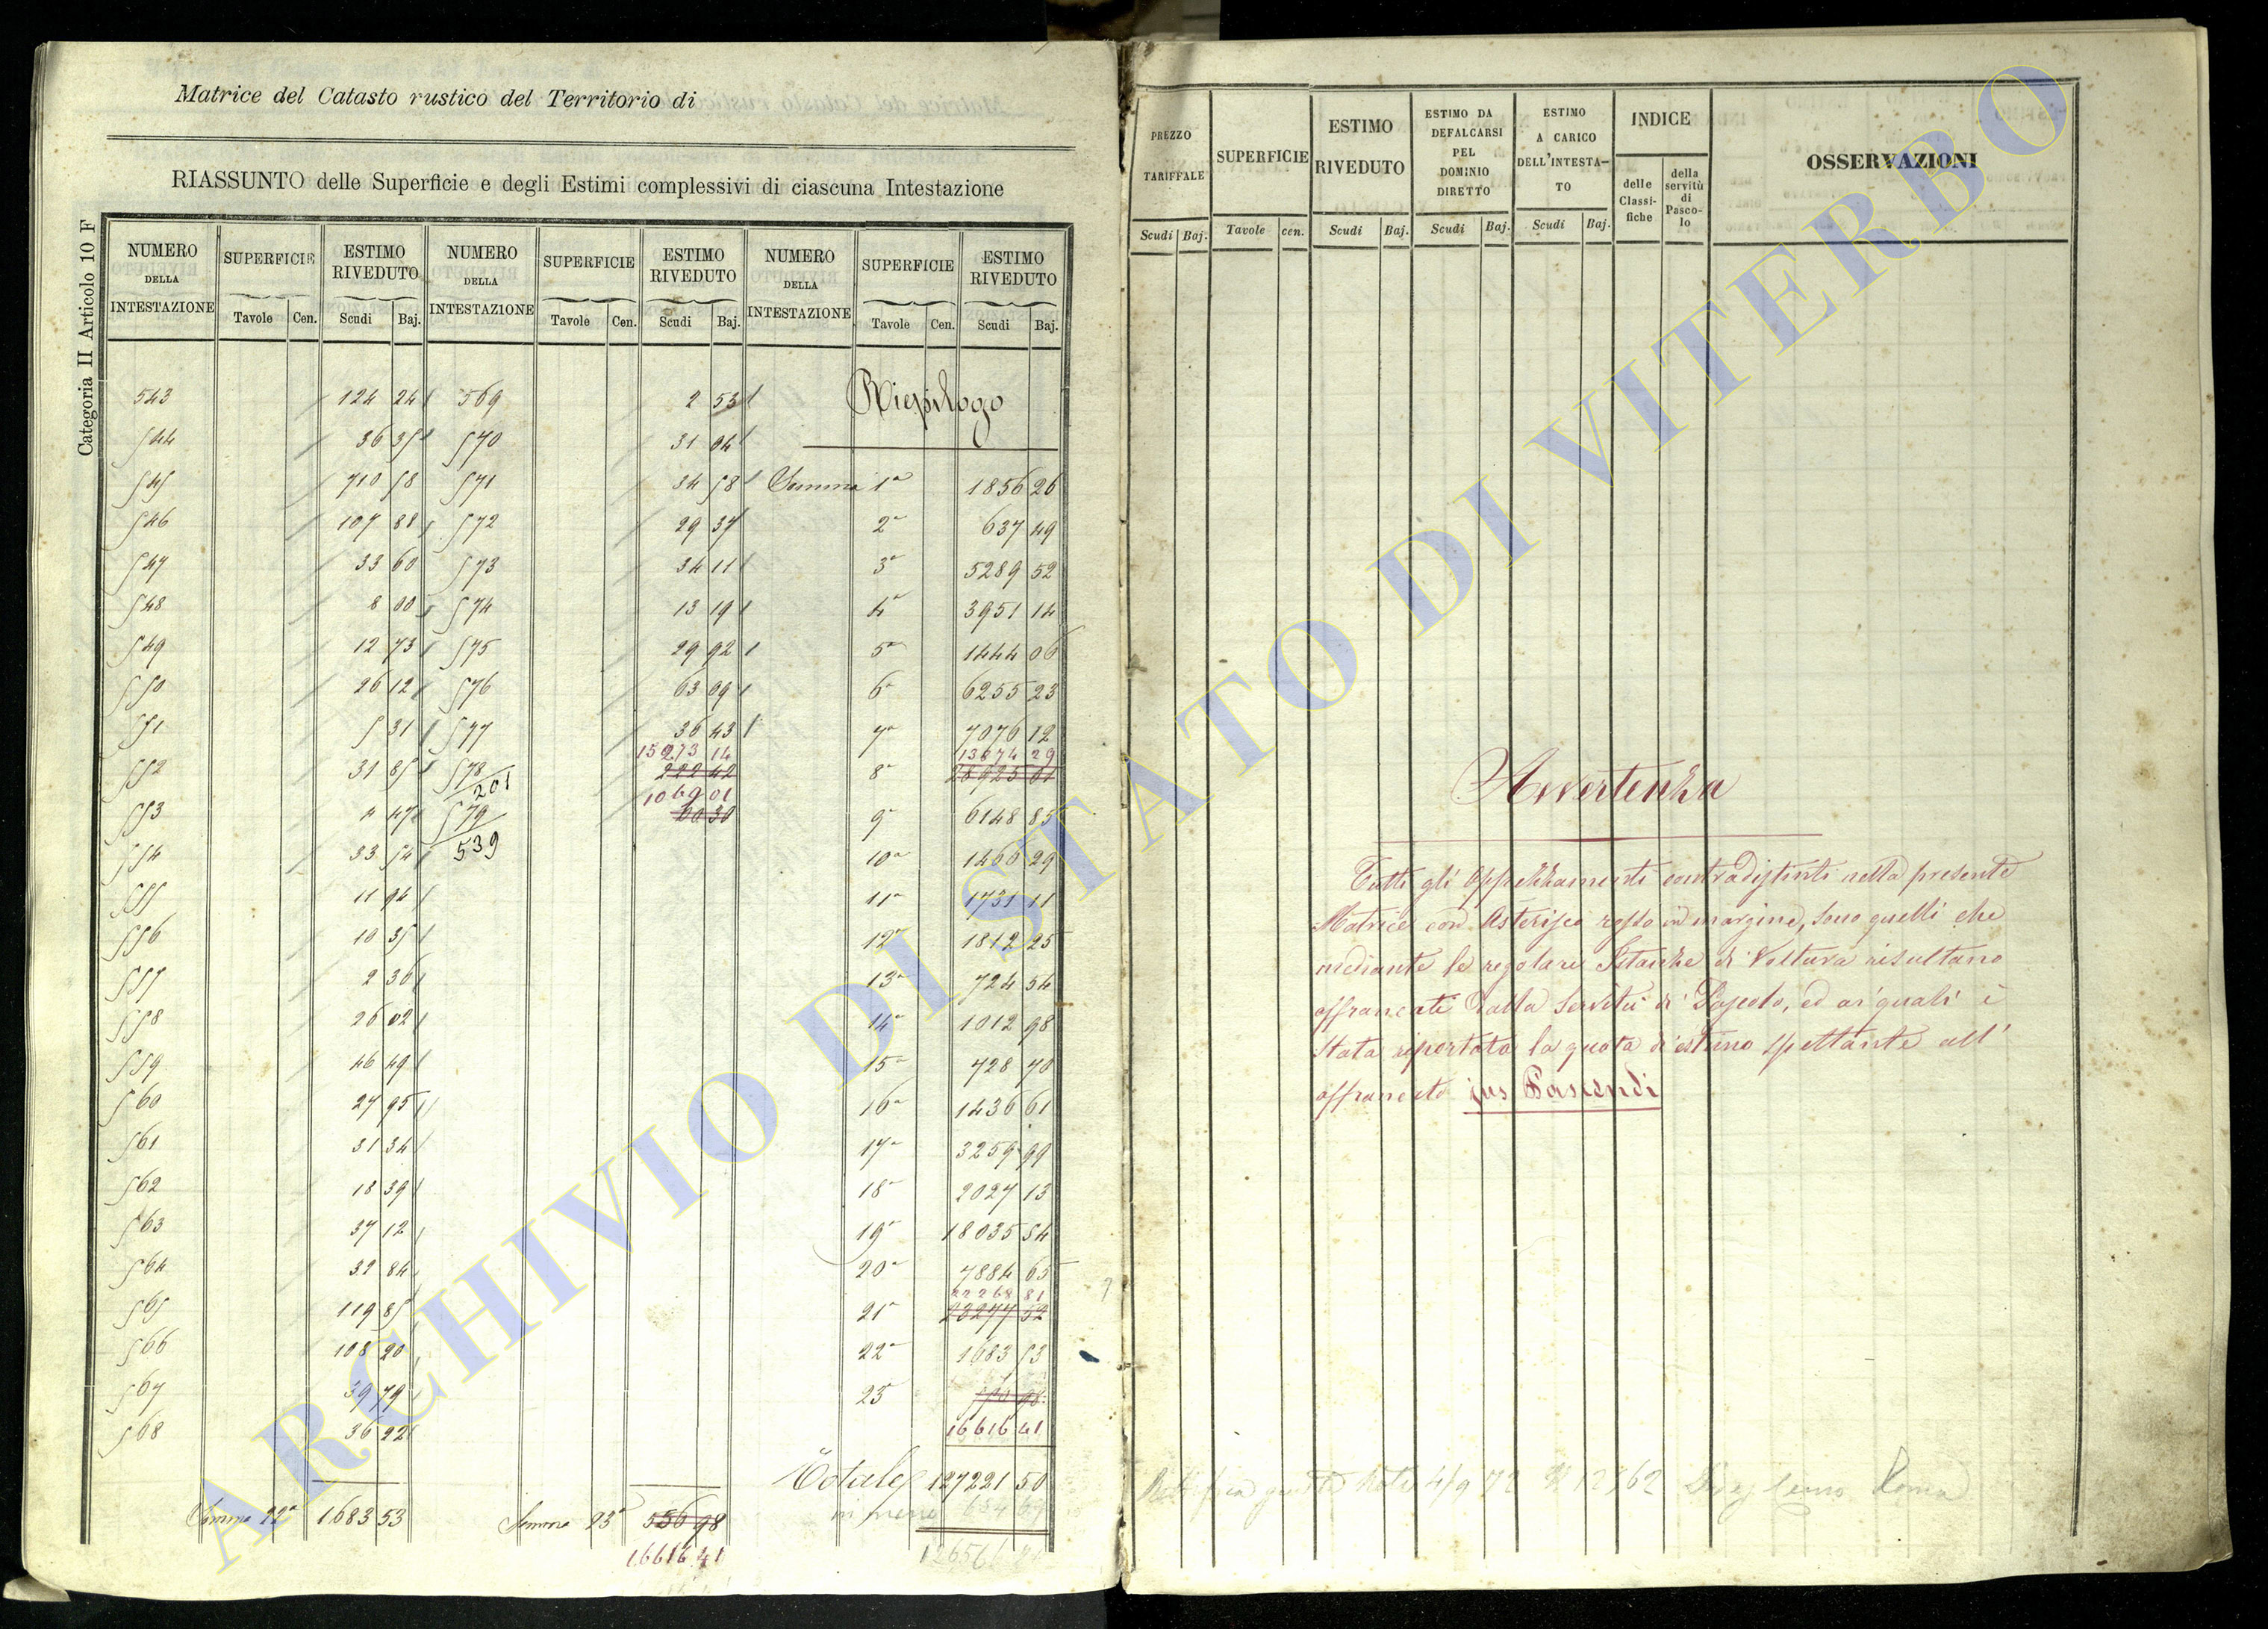 Matrice del Catasto rustico del Territorio di
RIASSUNTO delle Superficie e degli Estimi complessivi di ciascuna Intestazione
Categoria II Articolo 10 F
NUMERO DELLA INTESTAZIONE SUPERFICIE Tavole Cen. ESTIMO RIVEDUTO Scudi Baj. NUMERO DELLA INTESTAZIONE SUPERFICIE Tavole Cen. ESTIMO RIVEDUTO Scudi Baj. NUMERO DELLA INTESTAZIONE SUPERFICIE Tavole Cen. ESTIMO RIVEDUTO Scudi Baj.
543 124 24 569 2 53 Riepilogo
544 36 35 570 31 04
545 710 58 571 34 58 Somma 1a 1856 26
546 107 88 572 29 37 2a 637 49
547 33 60 573 34 11 3a 5289 52
548 8 00 574 13 19 4a 3951 14
549 12 73 575 29 92 5a 1444 06
550 26 12 576 63 09 6a 6255 23
551 5 31 577 36 43 7a 7076 12
15273 14 13674 29
552 31 85 578/201 222 42 8a
1069 01
553 4 47 579/539 9a 6148 85
554 33 54 10a 1460 29
555 11 94 11a 1731 11
556 10 35 12a 1812 25
557 2 36 13a 724 54
558 26 02 14a 1012 98
559 46 49 15a 728 70
560 27 95 16a 1436 61
561 31 34 17a 3259 99
562 18 39 18a 2027 13
563 37 12 19a 18035 54
564 32 84 20a 7884 65
22268 81
565 119 85 21a 23277 52
566 108 20 22a 1683 53
567 39 79 23
568 36 22 16616 41
Totale 127221 50
in meno
Somma 22a 1683 53 Somma 23a 556 98
16616 41
PREZZO TARIFFALE Scudi Baj. SUPERFICIE Tavole cen. ESTIMO RIVEDUTO Scudi Baj. ESTIMO DA DEFALCARSI PEL DOMINIO DIRETTO Scudi Baj. ESTIMO A CARICO DELL'INTESTATO Scudi Baj. INDICE delle Classifiche della servitù di Pascolo OSSERVAZIONI
Avvertenza
Tutti gli Appezzamenti contradistinti nella presente
Matrice con Asterisco rosso in margine, sono quelli che
mediante le regolari Istanze di Voltura risultano
affrancati dalla Servitù di Pascolo, ed ai quali è
stata riportata la quota d'estimo spettante all'
affrancato jus Pascendi
4/9 72 Roma
ARCHIVIO DI STATO DI VITERBO